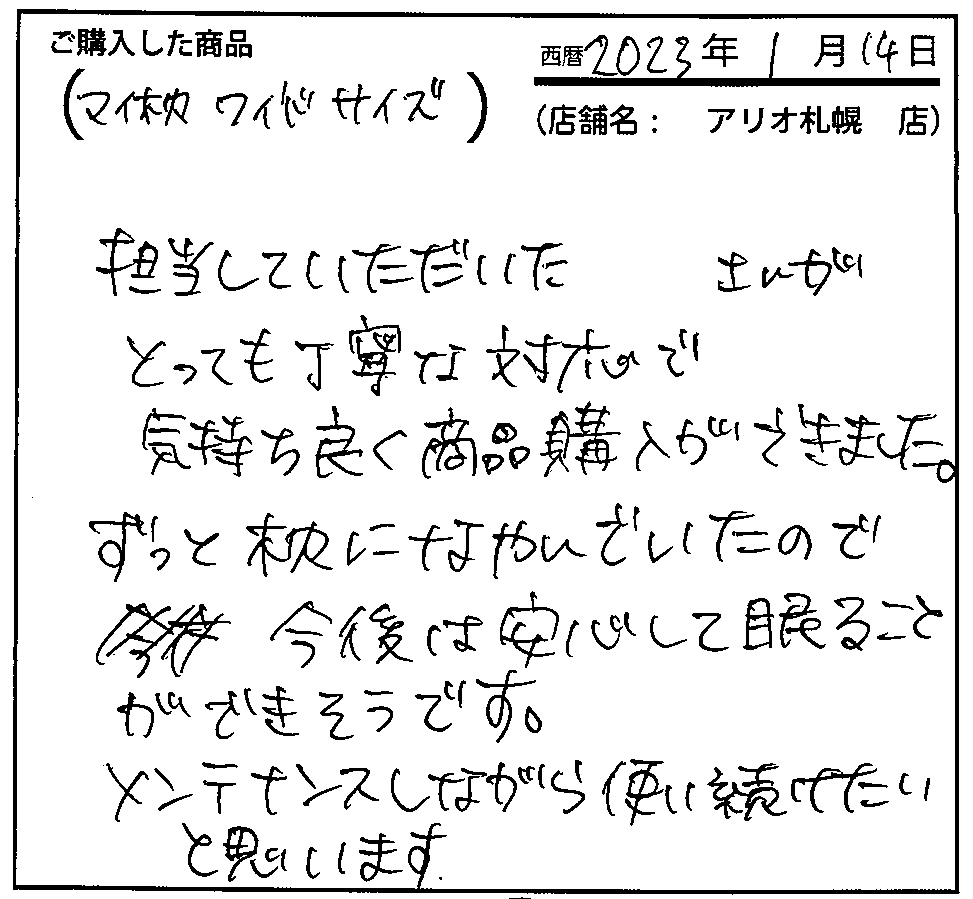 ご購入した商品
西暦2023年1月14日
(マイ枕 ワイドサイズ)
(店舗名： アリオ札幌 店)
担当していただいた さんが
とっても丁寧な対応で
気持ち良く商品購入ができました。
ずっと枕になやんでいたので
今後は安心して眠ること
ができそうです。
メンテナンスしながら使い続けたい
と思います.